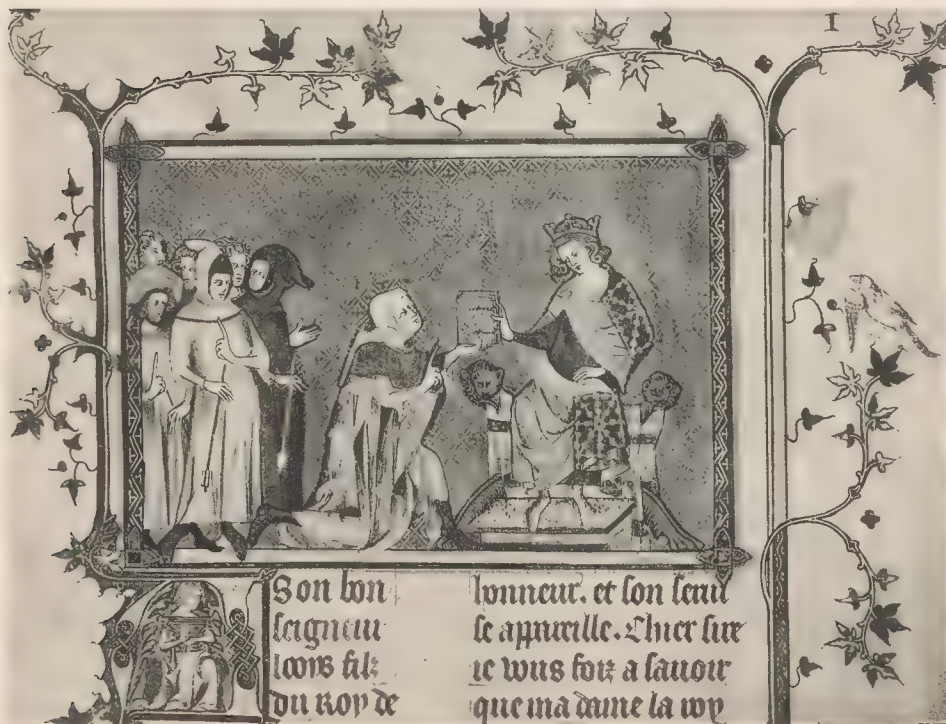 I
Son bon
seigneur
looys filz
du Roy de
honneur. et son serui
se appareille. Chier sire
ie vous foiz a sauoir
que ma dame la roy